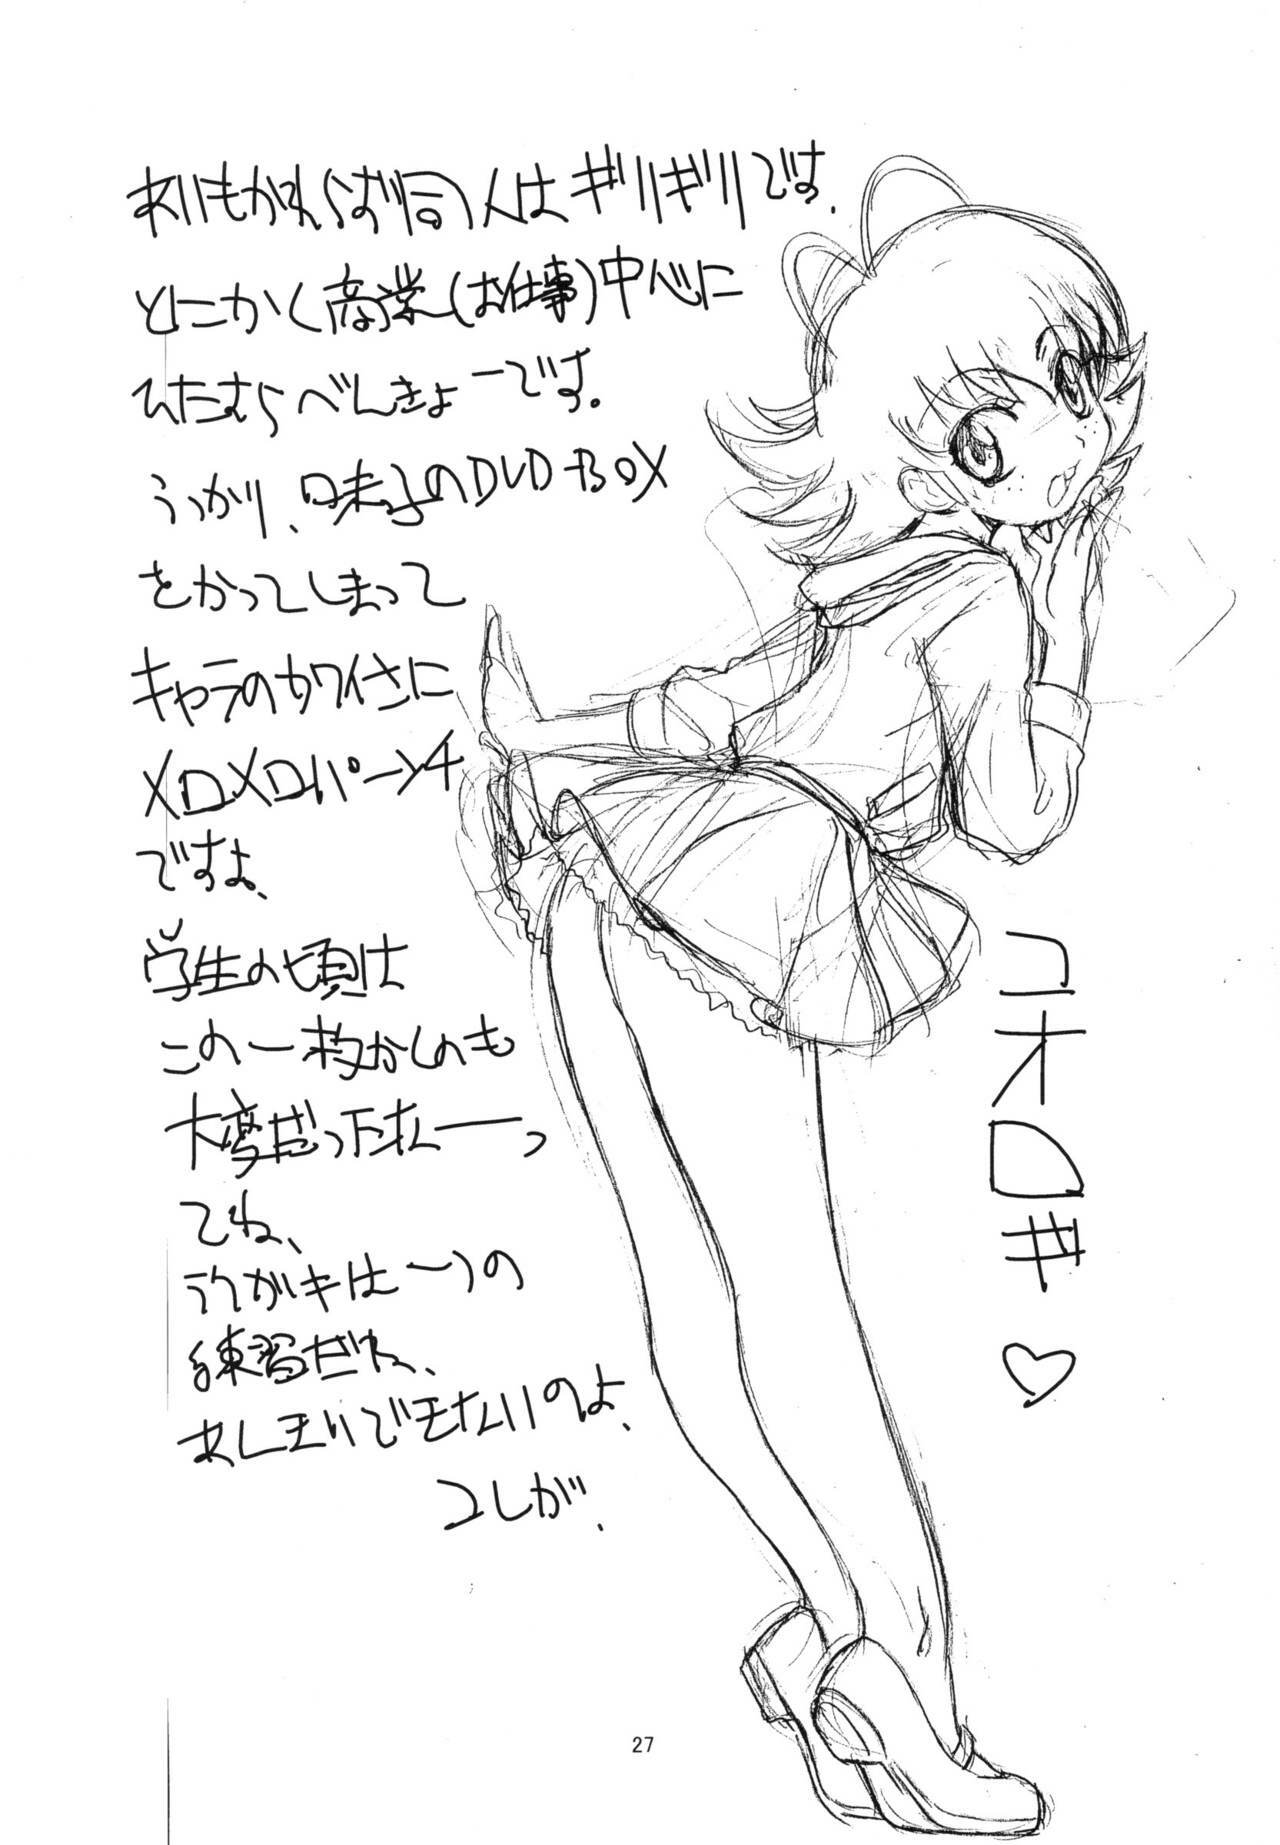 あいもかわらず同人はギリギリです.
とにかく商業(お仕事)中心に
ひたすらべんきょーです。
うっかり、味子のDVD-BOX
をかってしまって
キャラのカワイさに
メロメロパーンチ
ですよ、
学生の頃は
この一枚かくのも
大変だったなーっ
てね、
ラクガキは一つの
練習だね、
あしきりできないのよ、
コレが.
コオロギ♡
27